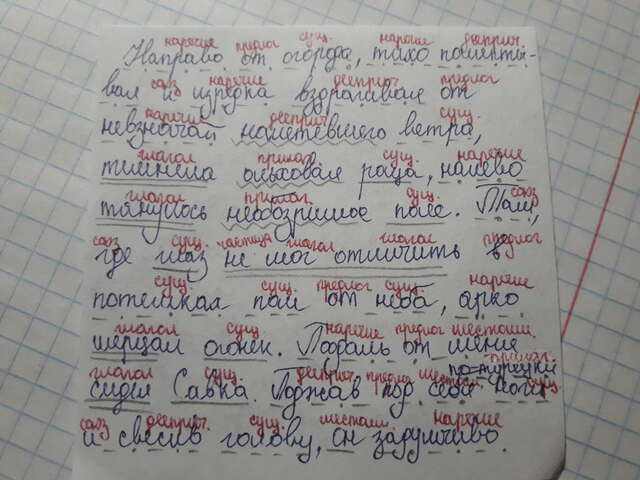 наречие предлог сущ. наречие дееприч.
Направо от огорода, тихо пошепты-
союз наречие дееприч. предлог
вая и изредка вздрагивая от
наречие дееприч сущ.
невзначай налетевшего ветра,
глагол прилаг. сущ. наречие
темнела ольховая роща, налево
глагол прилаг. сущ. союз
тянулось необозримое поле. Там,
союз сущ. частица глагол глагол предлог
где глаз не мог отличить в
сущ. сущ. предлог сущ. наречие
потемках поля от неба, ярко
глагол сущ. наречие предлог местоим
мерцал огонек. Поодаль от меня
прилаг.
по-турецки
глагол сущ. дееприч. предлог местоим. сущ.
сидел Савка. Поджав под себя ноги
союз дееприч. сущ. местоим наречие
и свесив голову, он задумчиво